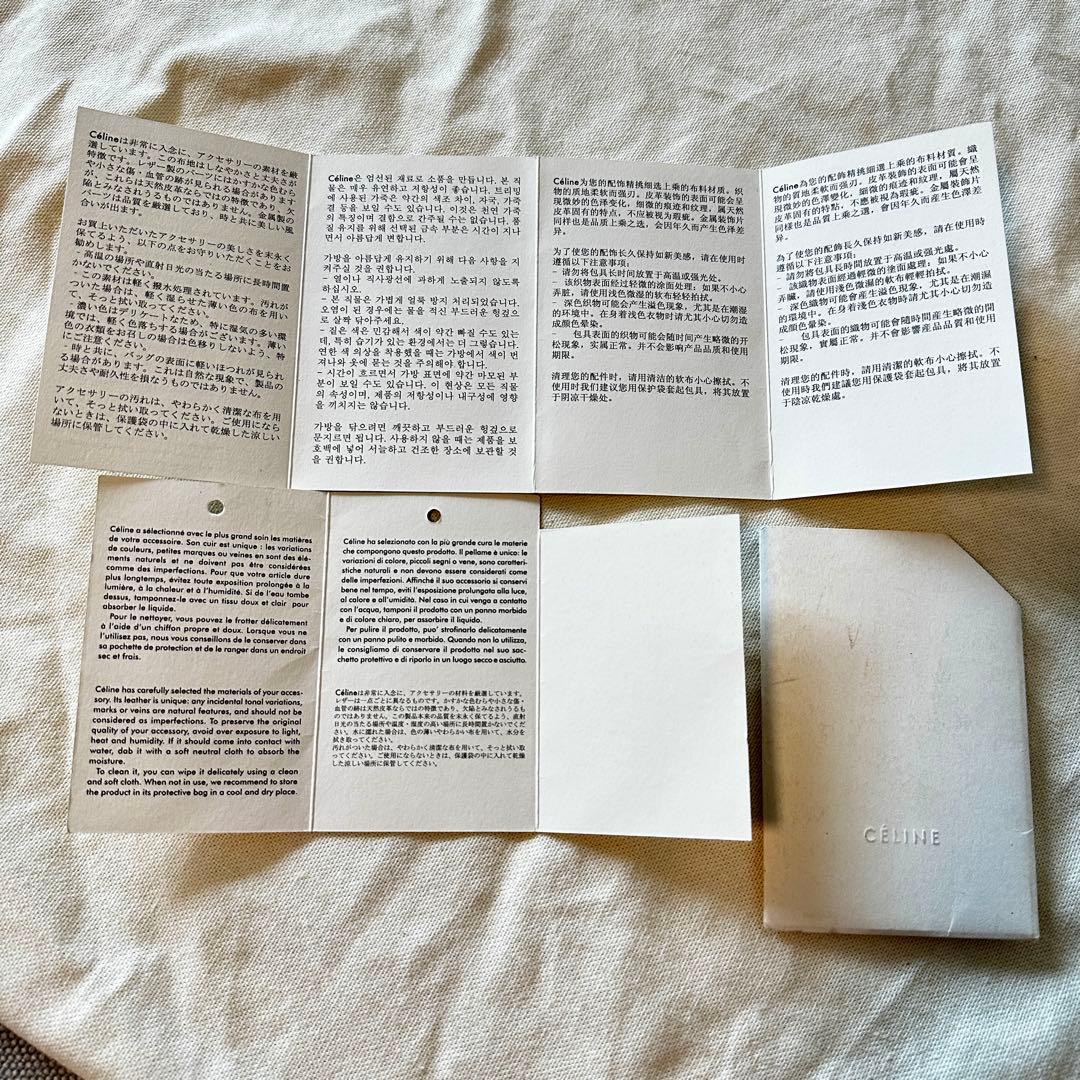 Célineは非常に入念に、アクセサリーの素材を厳
選しています。この布地はしなやかさと丈夫さが
特徴です。レザー製のパーツにはかすかな色むら
や小さな傷・血管の跡が見られる場合があります
が、これらは天然皮革ならではの特徴であり、欠
陥とみなされうるものではありません。金属製の
パーツは品質を厳選しており、時と共に美しい風
合いが出ます。
お買上いただいたアクセサリーの美しさを末永く
保てるよう、以下の点をお守りいただくことをお
勧めします。
- 高温の場所や直射日光の当たる場所に長時間置
かないでください。
- この素材は軽く撥水処理されています。汚れが
ついた場合は、軽く湿らせた薄い色の布を用い
て、そっと拭い取ってください。
- 濃い色はデリケートなため、特に湿気の多い環
境では、軽く色落ちする場合がございます。薄い
色の衣類をお召しの場合は色移りしないよう、特
にご注意ください。
- 時と共に、バッグの表面に軽いほつれが見られ
る場合があります。これは自然な現象で、製品の
丈夫さや耐久性を損なうものではありません。
アクセサリーの汚れは、やわらかく清潔な布を用
いて、そっと拭い取ってください。ご使用になら
ないときは、保護袋の中に入れて乾燥した涼しい
場所に保管してください。
Céline은 엄선된 재료로 소품을 만듭니다. 본 직
물은 매우 유연하고 저항성이 좋습니다. 트리밍
에 사용된 가죽은 약간의 색조 차이, 자국, 가죽
결 등을 보일 수도 있습니다. 이것은 천연 가죽
의 특징이며 결함으로 간주될 수는 없습니다. 품
질 유지를 위해 선택된 금속 부분은 시간이 지나
면서 아름답게 변합니다.
가방을 아름답게 유지하기 위해 다음 사항을 지
켜주실 것을 권합니다.
- 열이나 직사광선에 과하게 노출되지 않도록
하십시오.
- 본 직물은 가볍게 얼룩 방지 처리되었습니다.
오염이 된 경우에는 물을 적신 부드러운 헝겊으
로 살짝 닦아주세요.
- 짙은 색은 민감해서 색이 약간 빠질 수도 있는
데, 특히 습기가 있는 환경에서는 더 그렇습니다.
연한 색 의상을 착용했을 때는 가방에서 색이 번
져나와 옷에 묻는 것을 주의해야 합니다.
- 시간이 흐르면서 가방 표면에 약간 마모된 부
분이 보일 수도 있습니다. 이 현상은 모든 직물
의 속성이며, 제품의 저항성이나 내구성에 영향
을 끼치지는 않습니다.
가방을 닦으려면 깨끗하고 부드러운 헝겊으로
문지르면 됩니다. 사용하지 않을 때는 제품을 보
호백에 넣어 서늘하고 건조한 장소에 보관할 것
을 권합니다.
Céline为您的配饰精挑细选上乘的布料材质。织
物的质地柔软而强韧。皮革装饰的表面可能会呈
现微妙的色泽变化，细微的痕迹和纹理。属天然
皮革固有的特点，不应被视为瑕疵。金属装饰片
同样也是品质上乘之选，会因年久而产生色泽差
异。
为了使您的配饰长久保持如新美感，请在使用时
遵循以下注意事项：
- 请勿将包具长时间放置于高温或强光处。
- 该织物表面经过轻微的涂面处理；如果不小心
弄脏，请使用浅色微湿的软布轻轻拍拭。
- 深色织物可能会产生溢色现象，尤其是在潮湿
的环境中。在身着浅色衣物时请尤其小心切勿造
成颜色晕染。
- 包具表面的织物可能会随时间产生略微的开
松现象，实属正常。并不会影响产品品质和使用
期限。
清理您的配件时，请用清洁的软布小心擦拭。不
使用时我们建议您用保护袋套起包具，将其放置
于阴凉干燥处。
Céline為您的配飾精挑細選上乘的布料材質。織
物的質地柔軟而强刃。皮革裝飾的表面可能會呈
現微妙的色澤變化，細微的痕迹和紋理，屬天然
皮革固有的特點，不應被視為瑕疵。金屬裝飾片
同樣也是品質上乘之選，會因年久而産生色澤差
異。
為了使您的配飾長久保持如新美感，請在使用時
遵循以下注意事項：
- 請勿將包具長時間放置于高温或强光處。
- 該織物表面經過輕微的塗面處理；如果不小心
弄臟，請使用淺色微濕的軟布輕輕拍拭。
- 深色織物可能會産生溢色現象，尤其是在潮濕
的環境中。在身着淺色衣物時請尤其小心切勿造
成顏色暈染。
- 包具表面的織物可能會隨時間産生略微的開
松現象，實屬正常。并不會影響産品品質和使用
期限。
清理您的配件時，請用清潔的軟布小心擦拭。不
使用時我們建議您用保護袋套起包具，將其放置
于陰凉乾燥處。
Céline a sélectionné avec le plus grand soin les matières
de votre accessoire. Son cuir est unique : les variations
de couleurs, petites marques ou veines en sont des élé-
ments naturels et ne doivent pas être considérées
comme des imperfections. Pour que votre article dure
plus longtemps, évitez toute exposition prolongée à la
lumière, à la chaleur et à l'humidité. Si de l'eau tombe
dessus, tamponnez-le avec un tissu doux et clair pour
absorber le liquide.
Pour le nettoyer, vous pouvez le frotter délicatement
à l'aide d'un chiffon propre et doux. Lorsque vous ne
l'utilisez pas, nous vous conseillons de le conserver dans
sa pochette de protection et de le ranger dans un endroit
sec et frais.
Céline has carefully selected the materials of your acces-
sory. Its leather is unique: any incidental tonal variations,
marks or veins are natural features, and should not be
considered as imperfections. To preserve the original
quality of your accessory, avoid over exposure to light,
heat and humidity. If it should come into contact with
water, dab it with a soft neutral cloth to absorb the
moisture.
To clean it, you can wipe it delicately using a clean
and soft cloth. When not in use, we recommend to store
the product in its protective bag in a cool and dry place.
Céline ha selezionato con la più grande cura le materie
che compongono questo prodotto. Il pellame è unico: le
variazioni di colore, piccoli segni o vene, sono caratteri-
stiche naturali e non devono essere considerati come
delle imperfezioni. Affinché il suo accessorio si conservi
bene nel tempo, eviti l'esposizione prolungata alla luce,
al calore e all'umidità. Nel caso in cui venga a contatto
con l'acqua, tamponi il prodotto con un panno morbido
e di colore chiaro, per assorbire il liquido.
Per pulire il prodotto, puo' strofinarlo delicatamente
con un panno pulito e morbido. Quando non lo utilizza,
le consigliamo di conservare il prodotto nel suo sac-
chetto protettivo e di riporlo in un luogo secco e asciutto.
Célineは非常に入念に、アクセサリーの材料を厳選しています。
レザーは一点ごとに異なるものです。かすかな色むらや小さな傷・
血管の跡は天然皮革ならではの特徴であり、欠陥とみなされうるも
のではありません。この製品本来の品質を末永く保てるよう、直射
日光の当たる場所や温度・湿度の高い場所に長時間置かないでくだ
さい。水に濡れた場合は、色の薄いやわらかい布を用いて、水分を
拭き取ってください。
汚れがついた場合は、やわらかく清潔な布を用いて、そっと拭い取
ってください。ご使用にならないときは、保護袋の中に入れて乾燥
した涼しい場所に保管してください。
CÉLINE